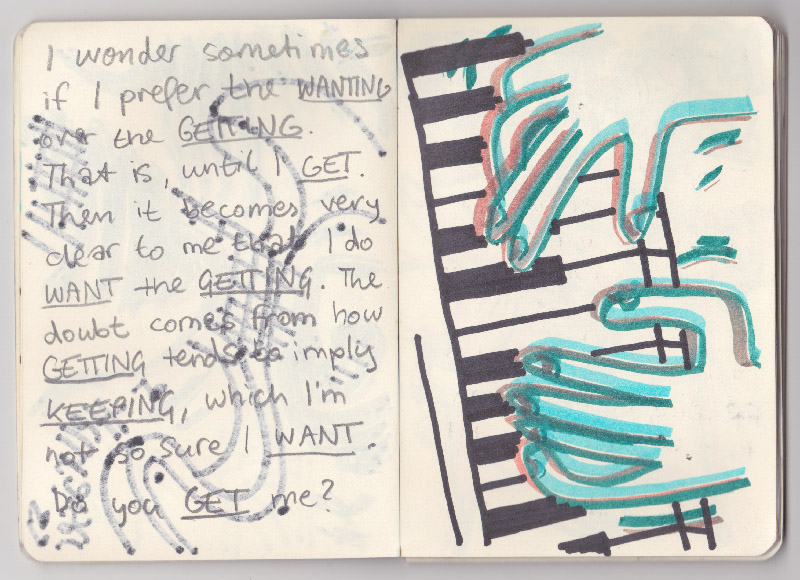 I wonder sometimes
if I prefer the WANTING
over the GETTING.
That is, until I GET.
Then it becomes very
clear to me that I do
WANT the GETTING. The
doubt comes from how
GETTING tends to imply
KEEPING, which I'm
not so sure I WANT.
Do you GET me?